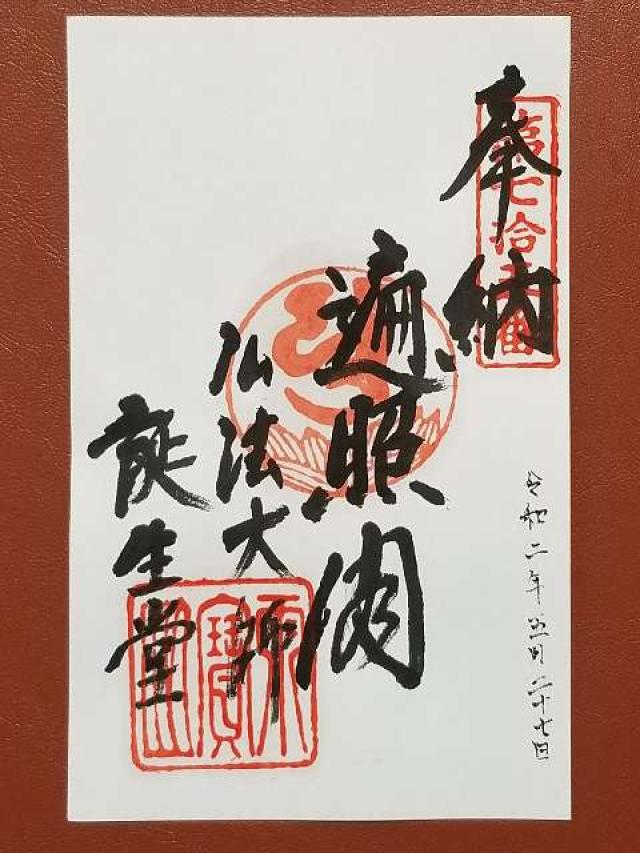 奉納
第七拾五番
遍照閣
弘法大師
誕生堂
令和二年五月二十七日